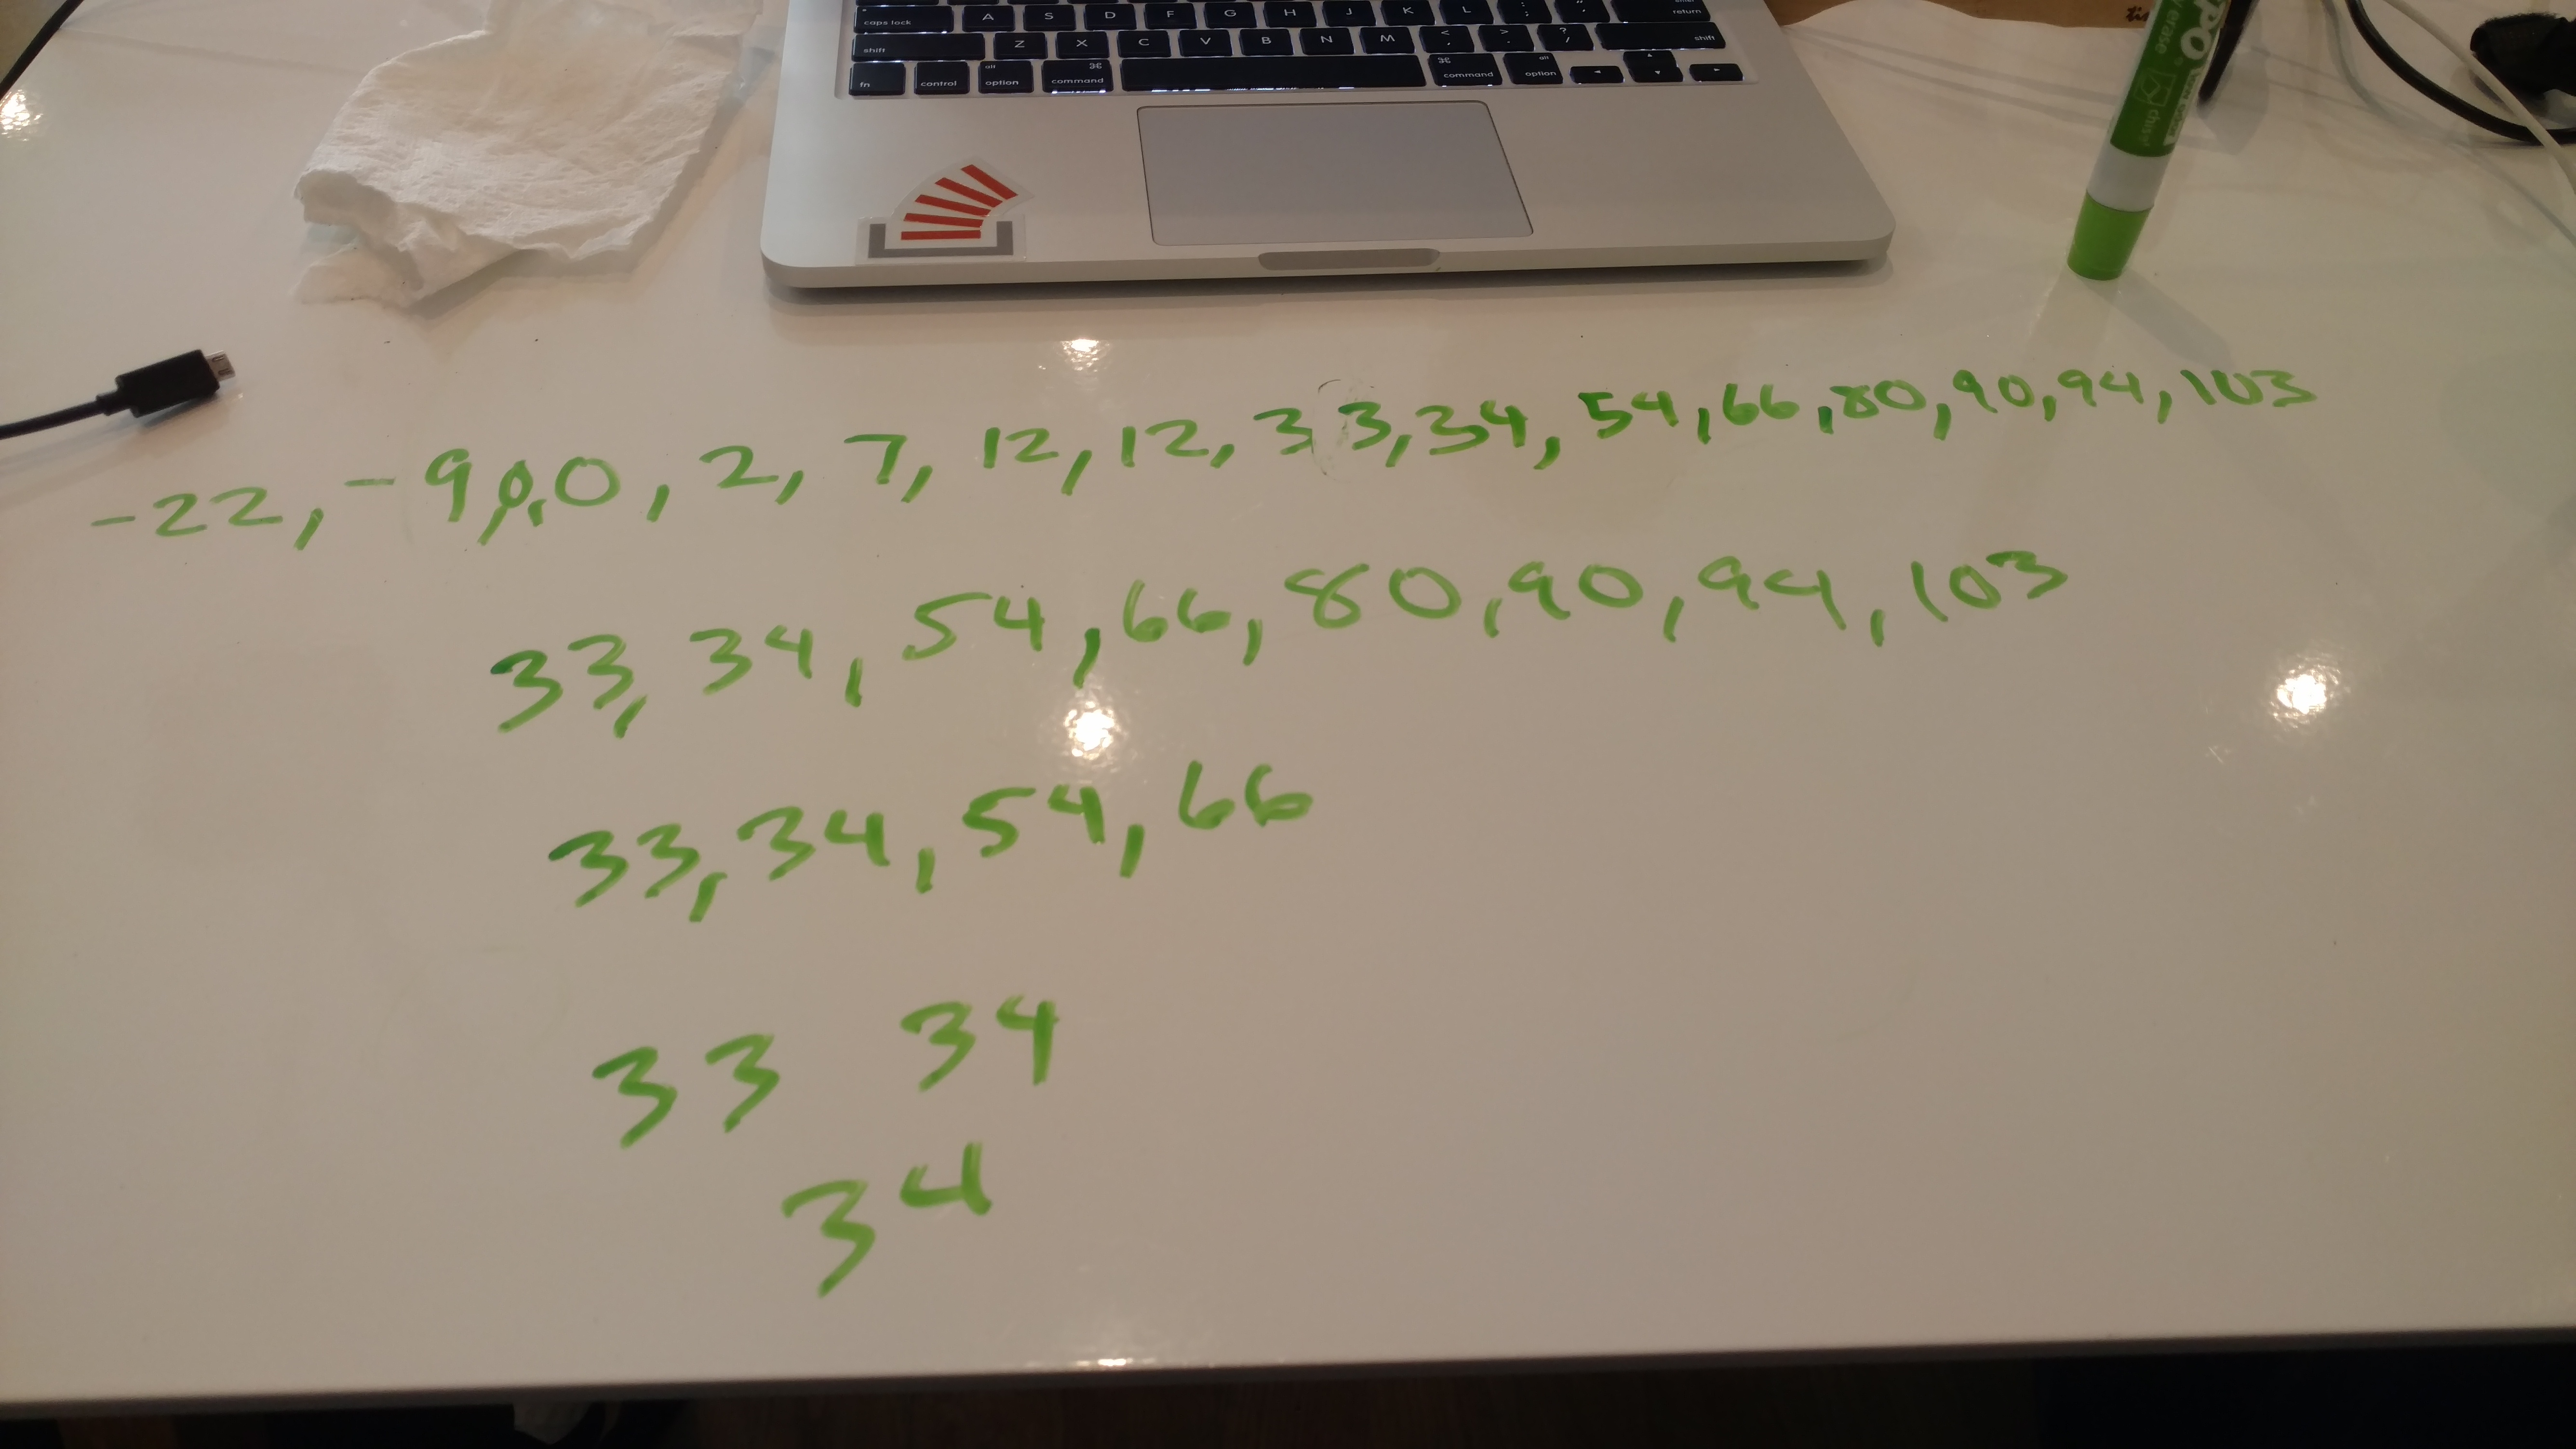 caps lock A S D F G H J K L : ; " ' return
shift Z X C V B N M < , > . ? / shift
fn control alt option ⌘ command ⌘ command alt option
-22, -9, 0, 0, 2, 7, 12, 12, 33, 34, 54, 66, 80, 90, 94, 103
33, 34, 54, 66, 80, 90, 94, 103
33, 34, 54, 66
33 34
34